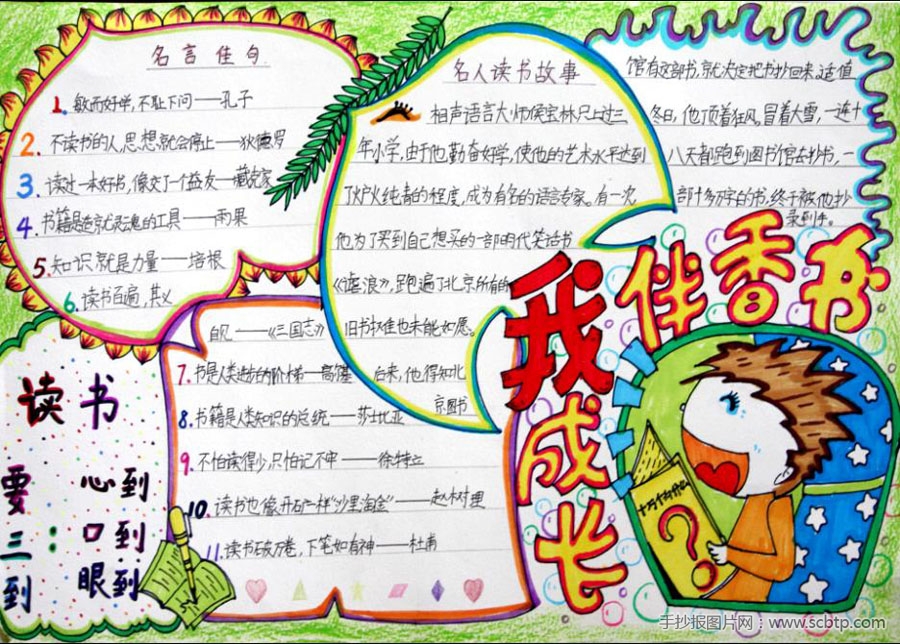 名言佳句
1. 敏而好学,不耻下问——孔子
2. 不读书的人,思想就会停止——狄德罗
3. 读过一本好书,像交了个益友——臧克家
4. 书籍是造就灵魂的工具——雨果
5. 知识就是力量——培根
6. 读书百遍,其义
自见——《三国志》
7. 书是人类进步的阶梯——高尔基
8. 书籍是人类知识的总统——莎士比亚
9. 不怕读得少,只怕记不牢——徐特立
10. 读书也像开矿一样"沙里淘金"——赵树理
11. 读书破万卷,下笔如有神——杜甫
名人读书故事
相声语言大师侯宝林只上过三
年小学,由于他勤奋好学,使他的艺术水平达到
了炉火纯青的程度,成为有名的语言专家。有一次
他为了买到自己想买的一部明代笑话书
《谑浪》,跑遍了北京所有的
旧书摊也未能如愿。
后来,他得知北
京图书
馆有这部书,就决定把书抄回来。适值
冬日,他顶着狂风,冒着大雪,一连十
八天都跑到图书馆去抄书,一
部十多万字的书,终于被他抄
录到手。
书香伴我
成长
读书
要 心到
三:口到
到 眼到
十万个为什么
?
手抄报图片网:www.scbtp.com